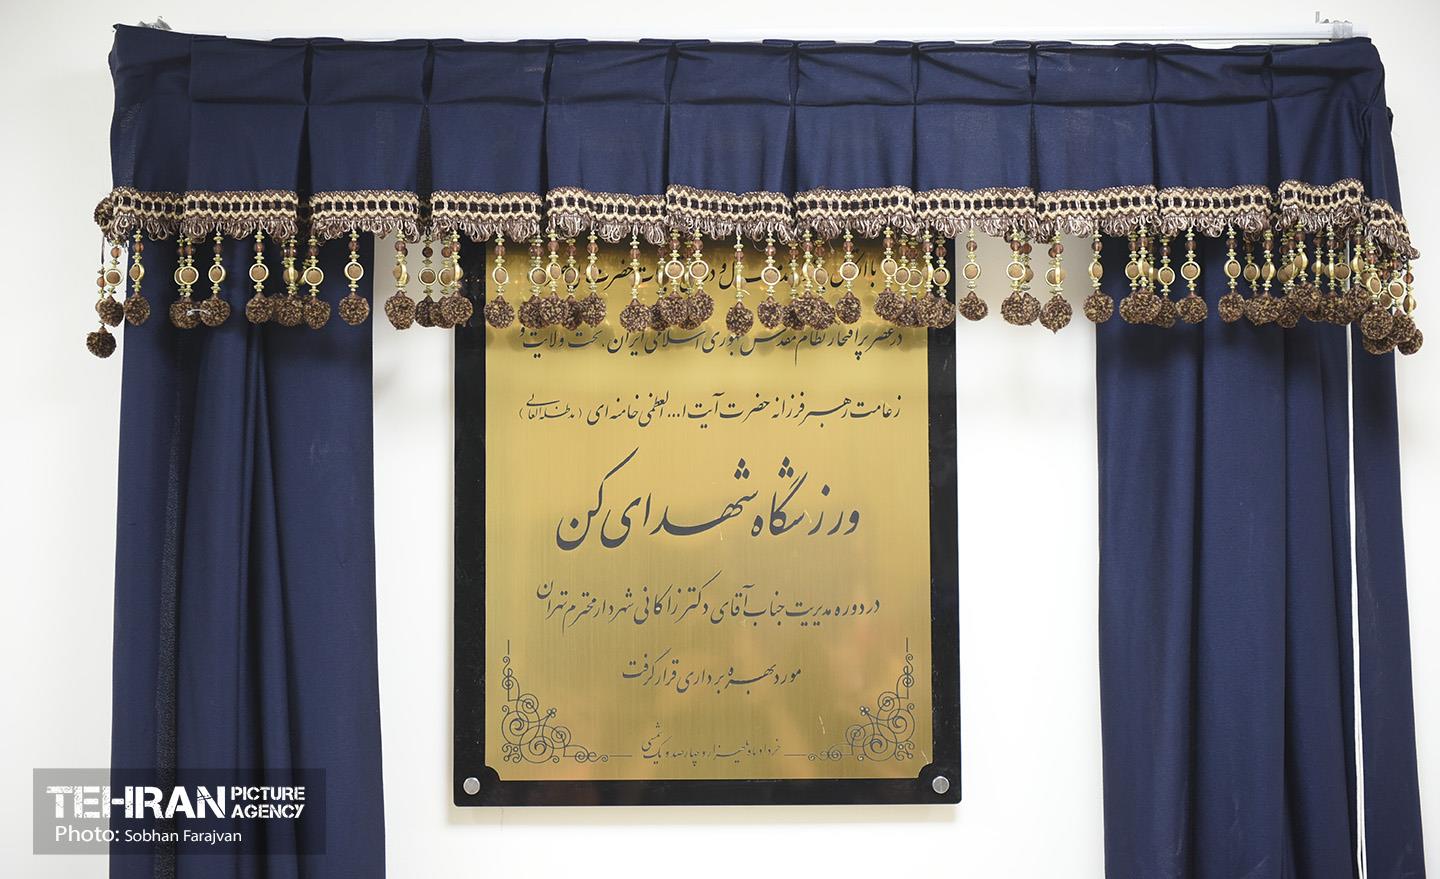 در عصر پر افتخار نظام مقدس جمهوری اسلامی ایران، تحت ولایت و
زعامت رهبر فرزانه حضرت آیت ا... العظمی خامنه ای (مدظله العالی)
ورزشگاه شهدای کن
در دوره مدیریت جناب آقای دکتر زاکانی شهردار محترم تهران
مورد بهره برداری قرار گرفت
خرداد ماه یکهزار و چهارصد و یک شمسی
TEHRAN PICTURE AGENCY
Photo: Sobhan Farajvan